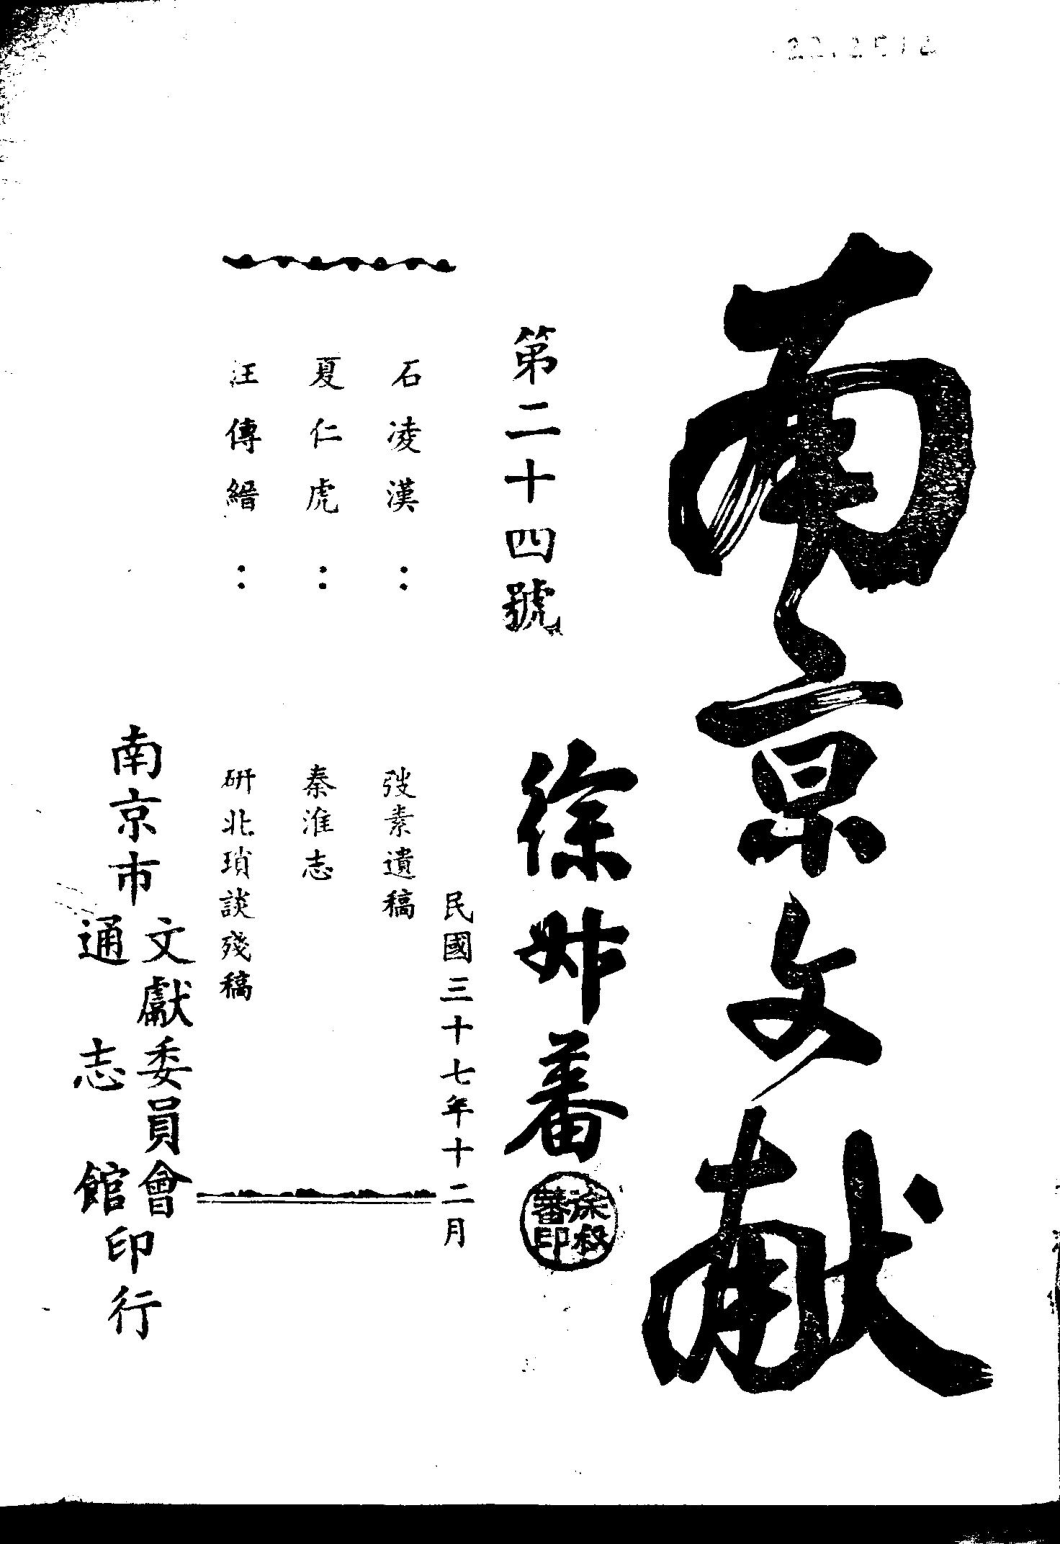 南京文献
第二十四號
徐叔蕃
徐叔蕃印
民國三十七年十二月
石凌漢：弢素遺稿
夏仁虎：秦淮志
汪傳縉：研北瑣談殘稿
南京市
文獻委員會
通志館
印行